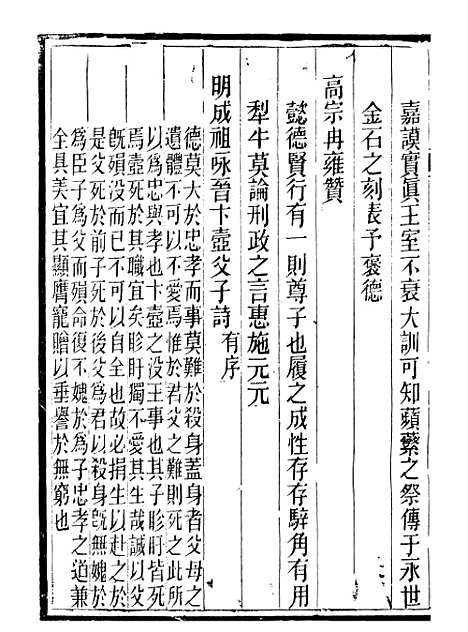 嘉謨實眞王室不衰大訓可知蘋蘩之祭傳于永世
金石之刻表予褒德
高宗冉雍贊
懿德賢行有一則尊子也履之成性存存騂角有用
犁牛莫論刑政之言惠施元元
明成祖咏晉卞壼父子詩有序
德莫大於忠孝而事莫難於殺身蓋身者父母之
遺體不可以不愛焉惟於君父之難則死之此所
以為忠與孝也卞壼之没王事也其子眕盱皆死
焉壼死於其職宜矣眕盱獨不愛其生哉誠以父
旣殞没而已不可以自全也故必捐生以赴之於
是父死於前子死於後父為君以殺身旣無媿於
為臣子為父而殞命復不媿於為子忠孝之道兼
全具美宜其顯膺寵贈以垂譽於無窮也